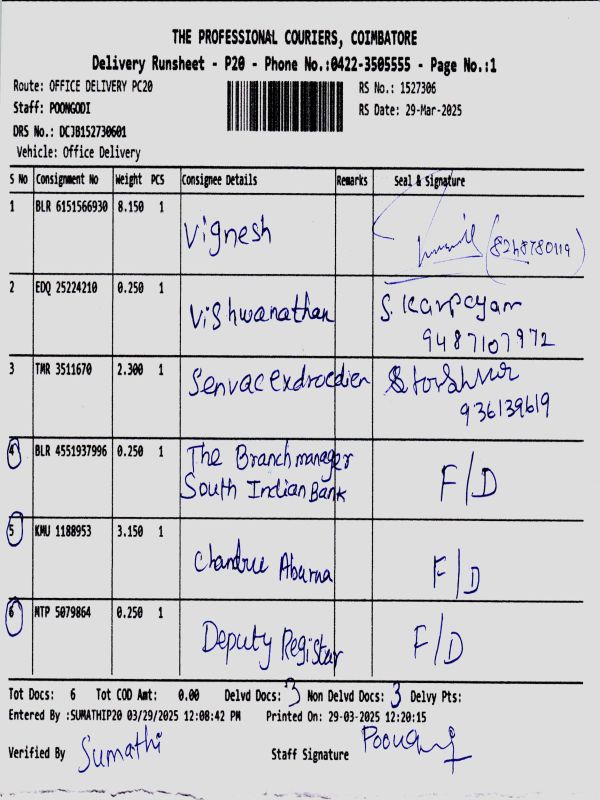 THE PROFESSIONAL COURIERS, COIMBATORE
Delivery Runsheet - P20 - Phone No.:0422-3505555 - Page No.:1
Route: OFFICE DELIVERY PC20 RS No.: 1527306
Staff: POONGODI RS Date: 29-Mar-2025
DRS No.: DCJB152730601
Vehicle: Office Delivery
S No Consignment No Weight PCS Consignee Details Remarks Seal & Signature
1 BLR 6151566930 8.150 1 Vignesh
2 EDQ 25224210 0.250 1 Vishwanathan S. Karpayan
9487107972
3 TMR 3511670 2.300 1
936139619
4 BLR 4551937996 0.250 1 The Branch manager F/D
South Indian Bank
5 KMU 1188953 3.150 1 F/D
6 MTP 5079864 0.250 1 Deputy Registar F/D
Tot Docs: 6 Tot COD Amt: 0.00 Delvd Docs: 3 Non Delvd Docs: 3 Delvy Pts:
Entered By :SUMATHIP20 03/29/2025 12:08:42 PM Printed On: 29-03-2025 12:20:15
Verified By Sumathi Staff Signature